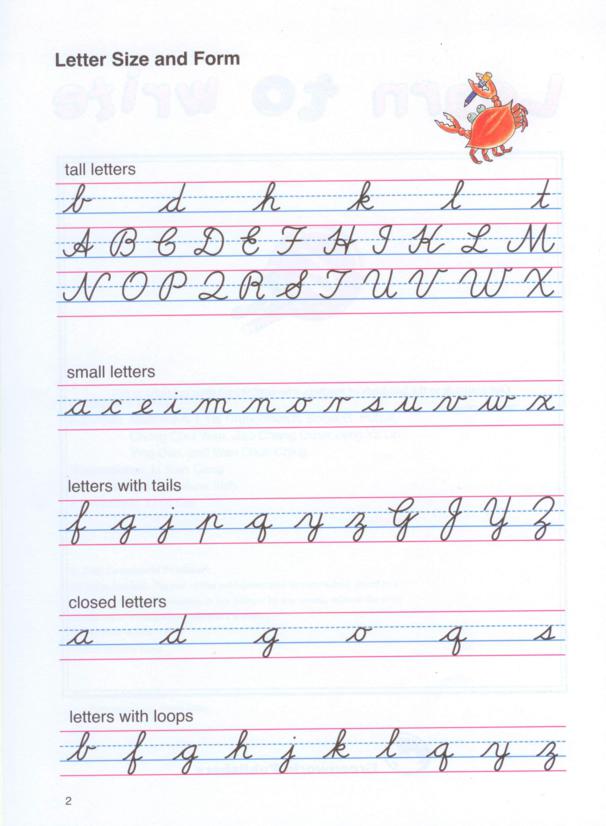 Letter Size and Form
tall letters
b d h k l t
A B C D E F H I K L M
N O P Q R S T U V W X
small letters
a c e i m n o r s u v w x
letters with tails
f g j p q y z G J Y Z
closed letters
a d g o q s
letters with loops
b f g h j k l q y z
2